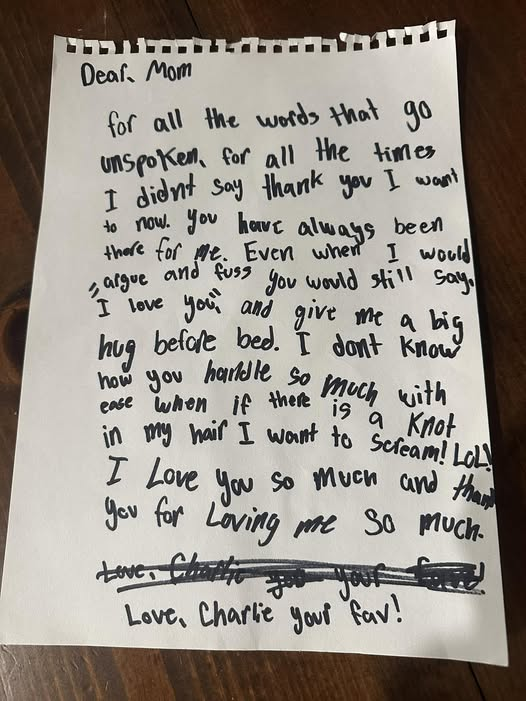 Dear, Mom
for all the words that go
unspoken, for all the times
I didnt say thank you I want
to now. you have always been
there for me. Even when I would
argue and fuss you would still say,
"I love you," and give me a big
hug before bed. I dont know
how you handle so much with
ease when if there is a knot
in my hair I want to scream! LOL!
I Love you so much and thank
you for Loving me so much.
Love, Charlie you your
Love, Charlie your fav!